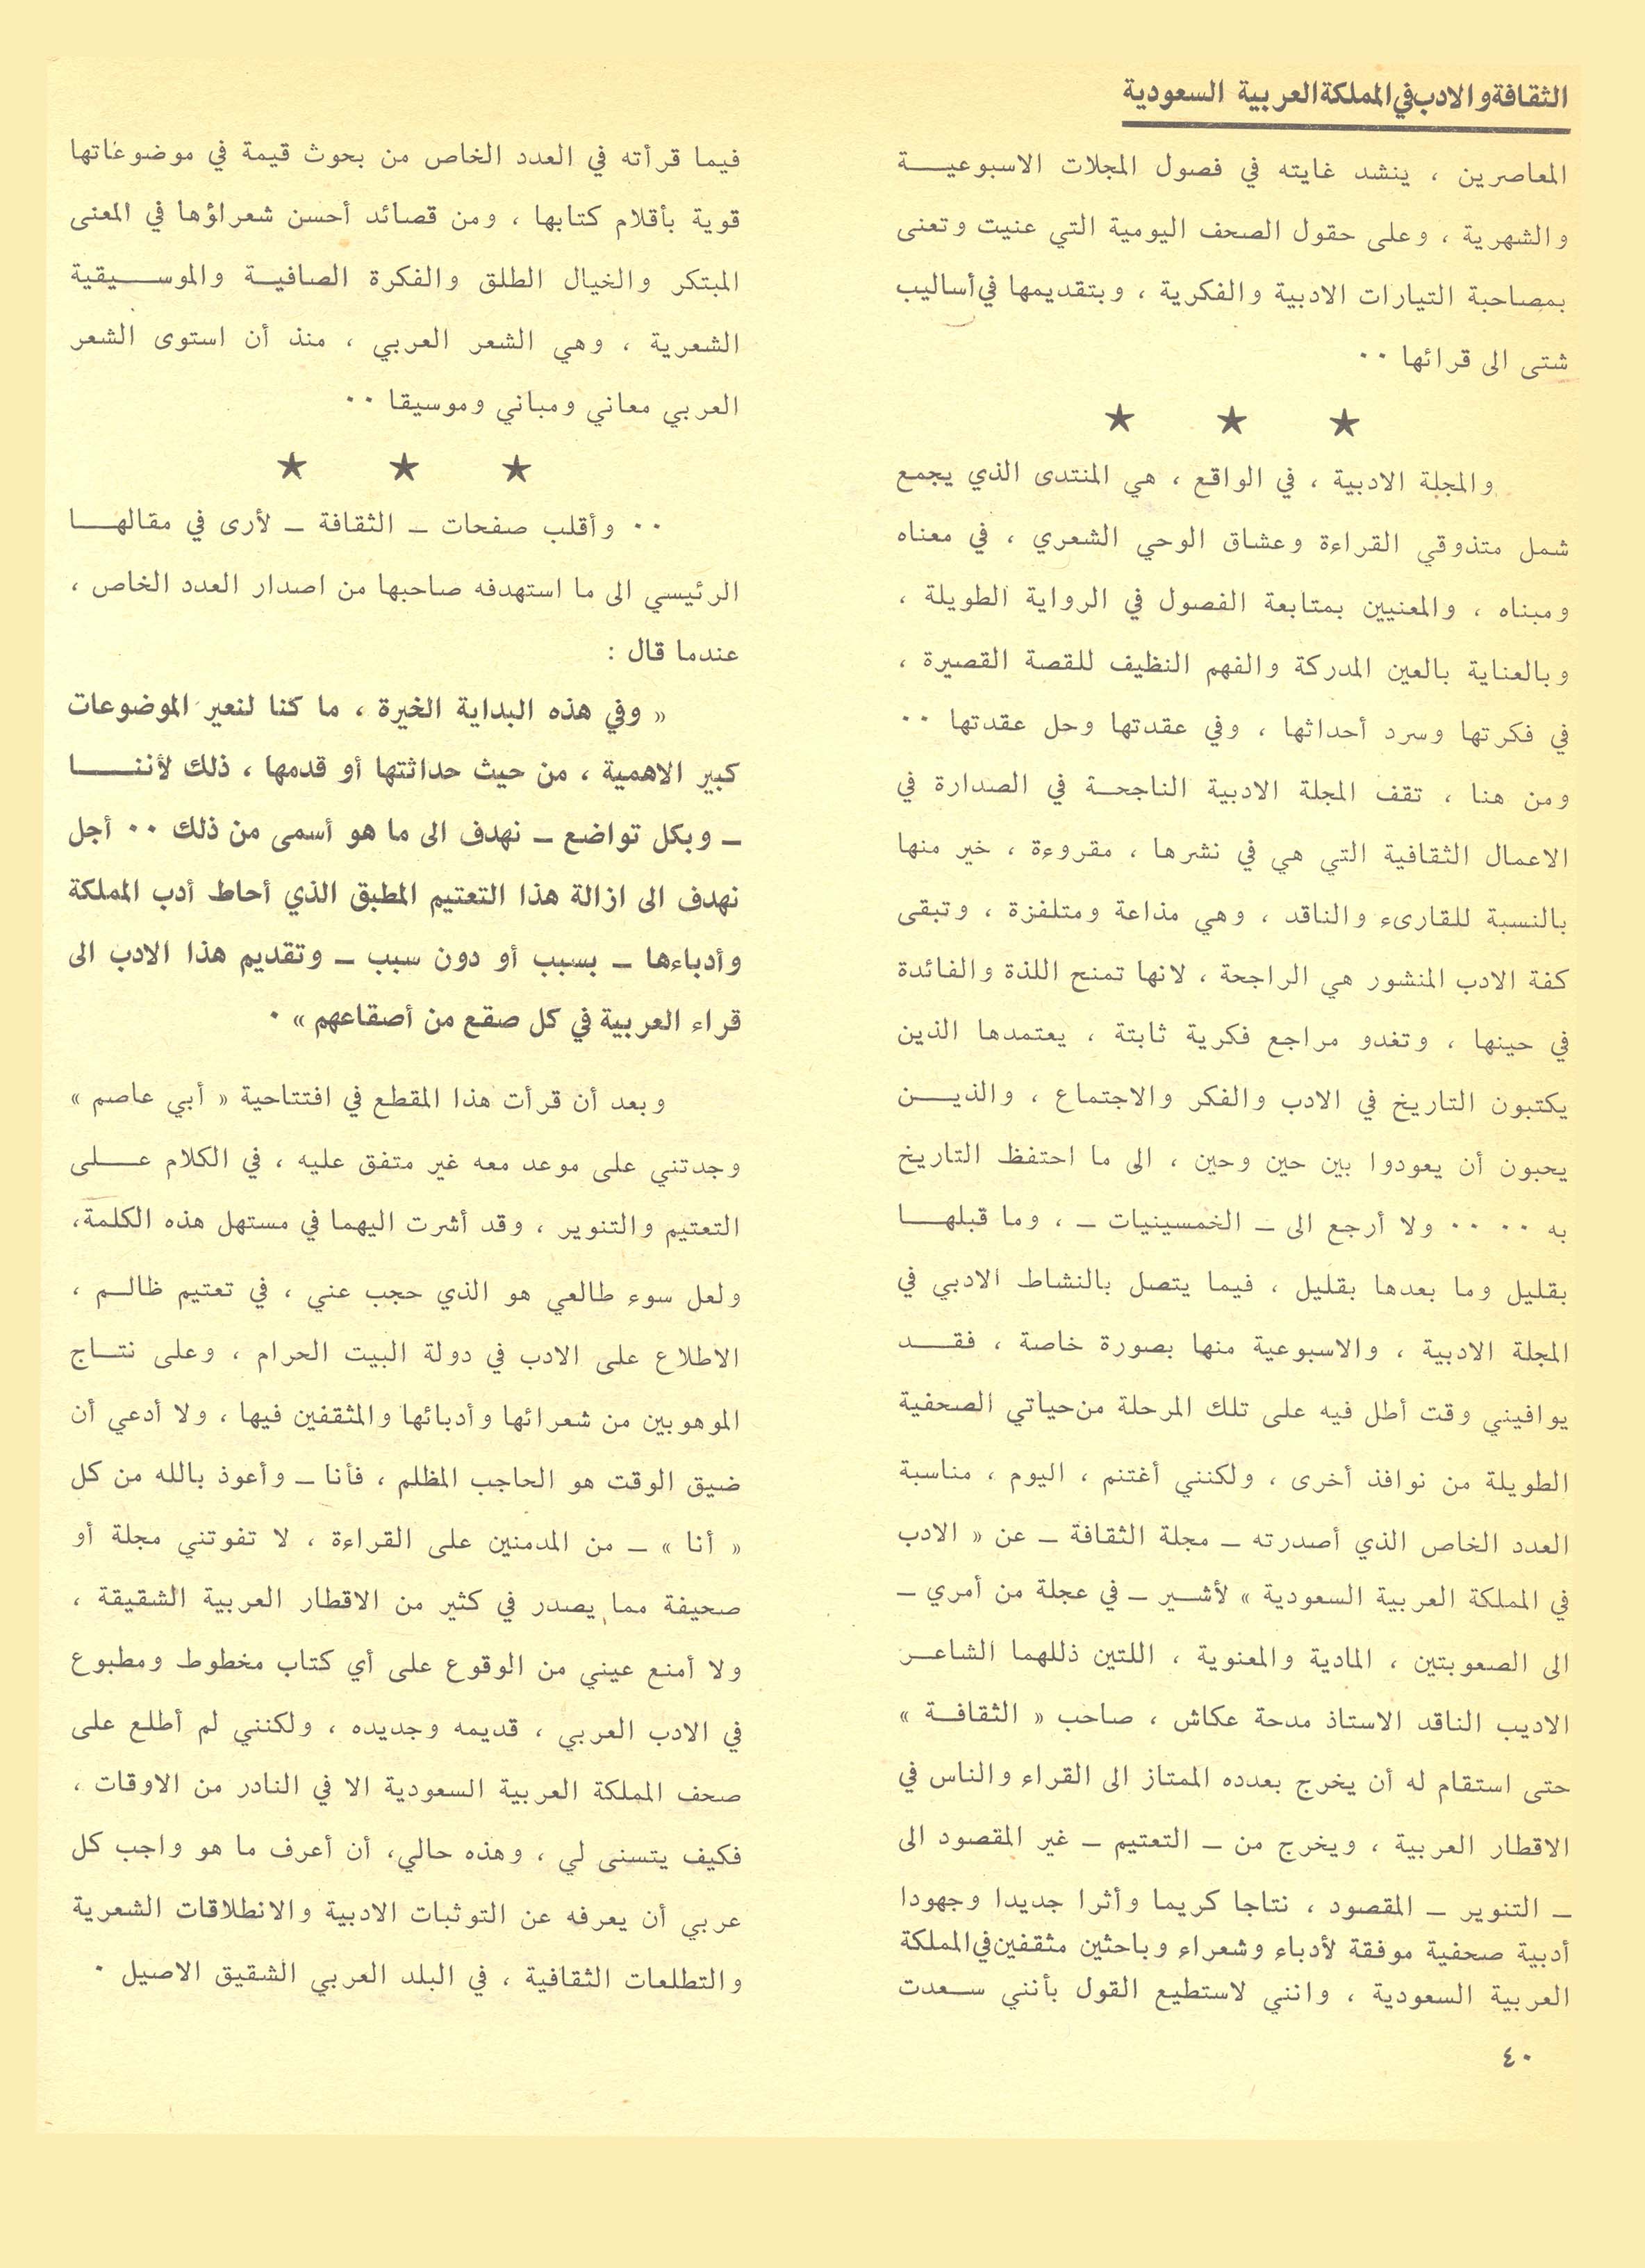 الثقافة والادب في المملكة العربية السعودية
المعاصرين ، ينشد غايته في فصول المجلات الاسبوعيــة
والشهرية ، وعلى حقول الصحف اليومية التي عنيت وتعنى
بمصاحبة التيارات الادبية والفكرية ، وبتقديمها في أساليب
شتى الى قرائها ٠٠
★ ★ ★
والمجلة الادبية ، في الواقع ، هي المنتدى الذي يجمع
شمل متذوقي القراءة وعشاق الوحي الشعري ، في معناه
ومبناه ، والمعنيين بمتابعة الفصول في الرواية الطويلة ،
وبالعناية بالعين المدركة والفهم النظيف للقصة القصيرة ،
في فكرتها وسرد أحداثها ، وفي عقدتها وحل عقدتها ٠٠
ومن هنا ، تقف المجلة الادبية الناجحـة في الصدارة في
الاعمال الثقافية التي هي في نشرها ، مقروءة ، خير منها
بالنسبة للقارىء والناقد ، وهي مذاعة ومتلفزة ، وتبقى
كفة الادب المنشور هي الراجحة ، لانها تمنح اللذة والفائدة
في حينها ، وتغدو مراجع فكرية ثابتة ، يعتمدها الذين
يكتبون التاريخ في الادب والفكر والاجتماع ، والذيــن
يحبون أن يعودوا بين حين وحين ، الى ما احتفظ التاريخ
به ٠٠ ٠٠ ولا أرجع الى ـ الخمسينيات ـ ، وما قبلهــا
بقليل وما بعدها بقليل ، فيما يتصل بالنشاط الادبي في
المجلة الادبية ، والاسبوعية منها بصورة خاصة ، فقــد
يوافيني وقت أطل فيه على تلك المرحلة من حياتي الصحفية
الطويلة من نوافذ أخرى ، ولكنني أغتنم ، اليوم ، مناسبة
العدد الخاص الذي أصدرته ـ مجلة الثقافة ـ عن « الادب
في المملكة العربية السعودية » لأشــير ـ في عجلة من أمري ـ
الى الصعوبتين ، المادية والمعنوية ، اللتين ذللهما الشاعــر
الاديب الناقد الاستاذ مدحة عكاش ، صاحب « الثقافــة »
حتى استقام له أن يخرج بعدده الممتاز الى القراء والناس في
الاقطار العربية ، ويخرج من ـ التعتيم ـ غير المقصود الى
ـ التنوير ـ المقصود ، نتاجا كريما وأثرا جديدا وجهودا
أدبية صحفية موفقة لأدباء وشعراء وباحثين مثقفين في المملكة
العربية السعودية ، وانني لاستطيع القول بأنني ســعدت
فيما قرأته في العدد الخاص من بحوث قيمة في موضوعاتها
قوية بأقلام كتابها ، ومن قصائد أحسن شعراؤها في المعنى
المبتكر والخيال الطلق والفكرة الصافيــة والموســيقية
الشعرية ، وهي الشعر العربي ، منذ أن استوى الشعر
العربي معاني ومباني وموسيقا ٠٠
★ ★ ★
٠٠ وأقلب صفحات ـ الثقافة ـ لأرى في مقالهــا
الرئيسي الى ما استهدفه صاحبها من اصدار العدد الخاص ،
عندما قال :
« وفي هذه البداية الخيرة ، ما كنا لنعير الموضوعات
كبير الاهمية ، من حيث حداثتها أو قدمها ، ذلك لأننــا
ـ وبكل تواضع ـ نهدف الى ما هو أسمى من ذلك ٠٠ أجل
نهدف الى ازالة هذا التعتيم المطبق الذي أحاط أدب المملكة
وأدباءها ـ بسبب أو دون سبب ـ وتقديم هذا الادب الى
قراء العربية في كل صقع من أصقاعهم » ٠
وبعد أن قرأت هذا المقطع في افتتاحية « أبي عاصم »
وجدتني على موعد معه غير متفق عليه ، في الكلام عــلى
التعتيم والتنوير ، وقد أشرت اليهما في مستهل هذه الكلمة،
ولعل سوء طالعي هو الذي حجب عني ، في تعتيم ظالــم ،
الاطلاع على الادب في دولة البيت الحرام ، وعلى نتــاج
الموهوبين من شعرائها وأدبائها والمثقفين فيها ، ولا أدعي أن
ضيق الوقت هو الحاجب المظلم ، فأنا ـ وأعوذ بالله من كل
« أنا » ـ من المدمنين على القراءة ، لا تفوتني مجلة أو
صحيفة مما يصدر في كثير من الاقطار العربية الشقيقة ،
ولا أمنع عيني من الوقوع على أي كتاب مخطوط ومطبوع
في الادب العربي ، قديمه وجديده ، ولكنني لم أطلع على
صحف المملكة العربية السعودية الا في النادر من الاوقات ،
فكيف يتسنى لي ، وهذه حالي، أن أعرف ما هو واجب كل
عربي أن يعرفه عن التوثبات الادبية والانطلاقات الشعرية
والتطلعات الثقافية ، في البلد العربي الشقيق الاصيل ٠
٤٠